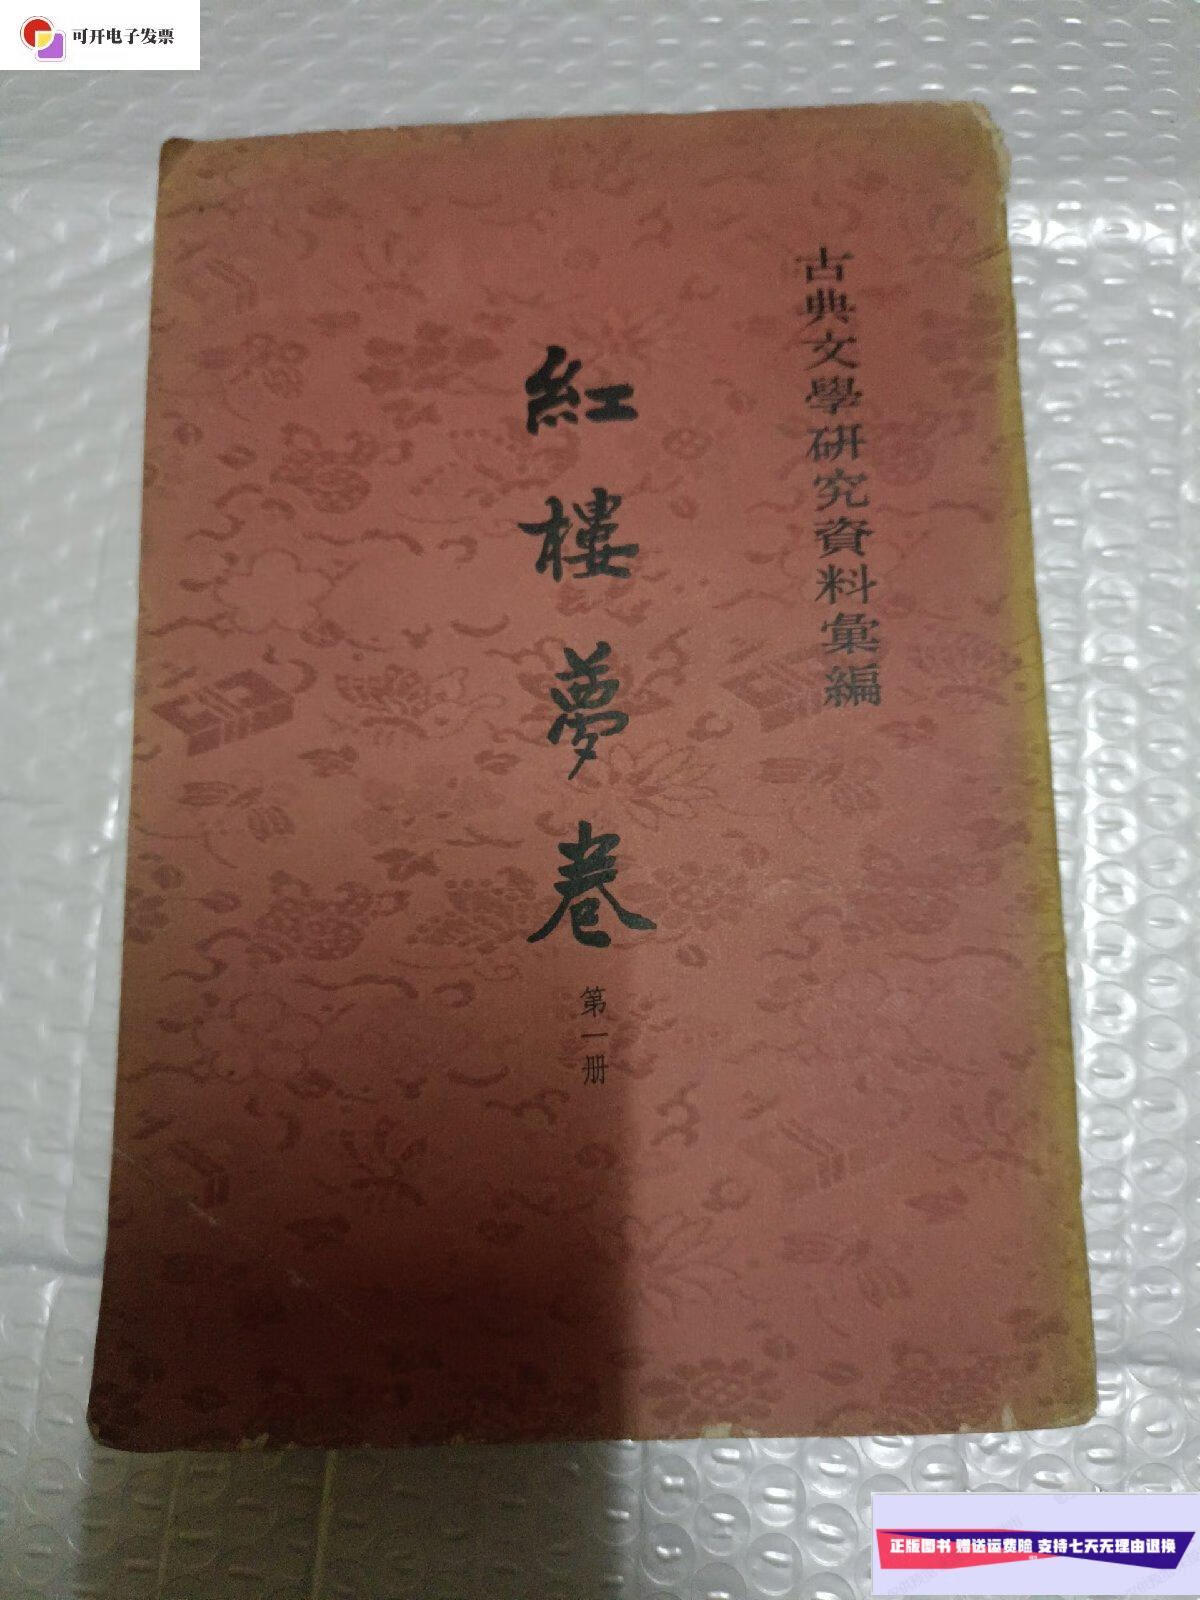 可开电子发票
古典文學研究資料彙編
紅樓夢卷
第一册
正版图书 赠送运费险 支持七天无理由退换